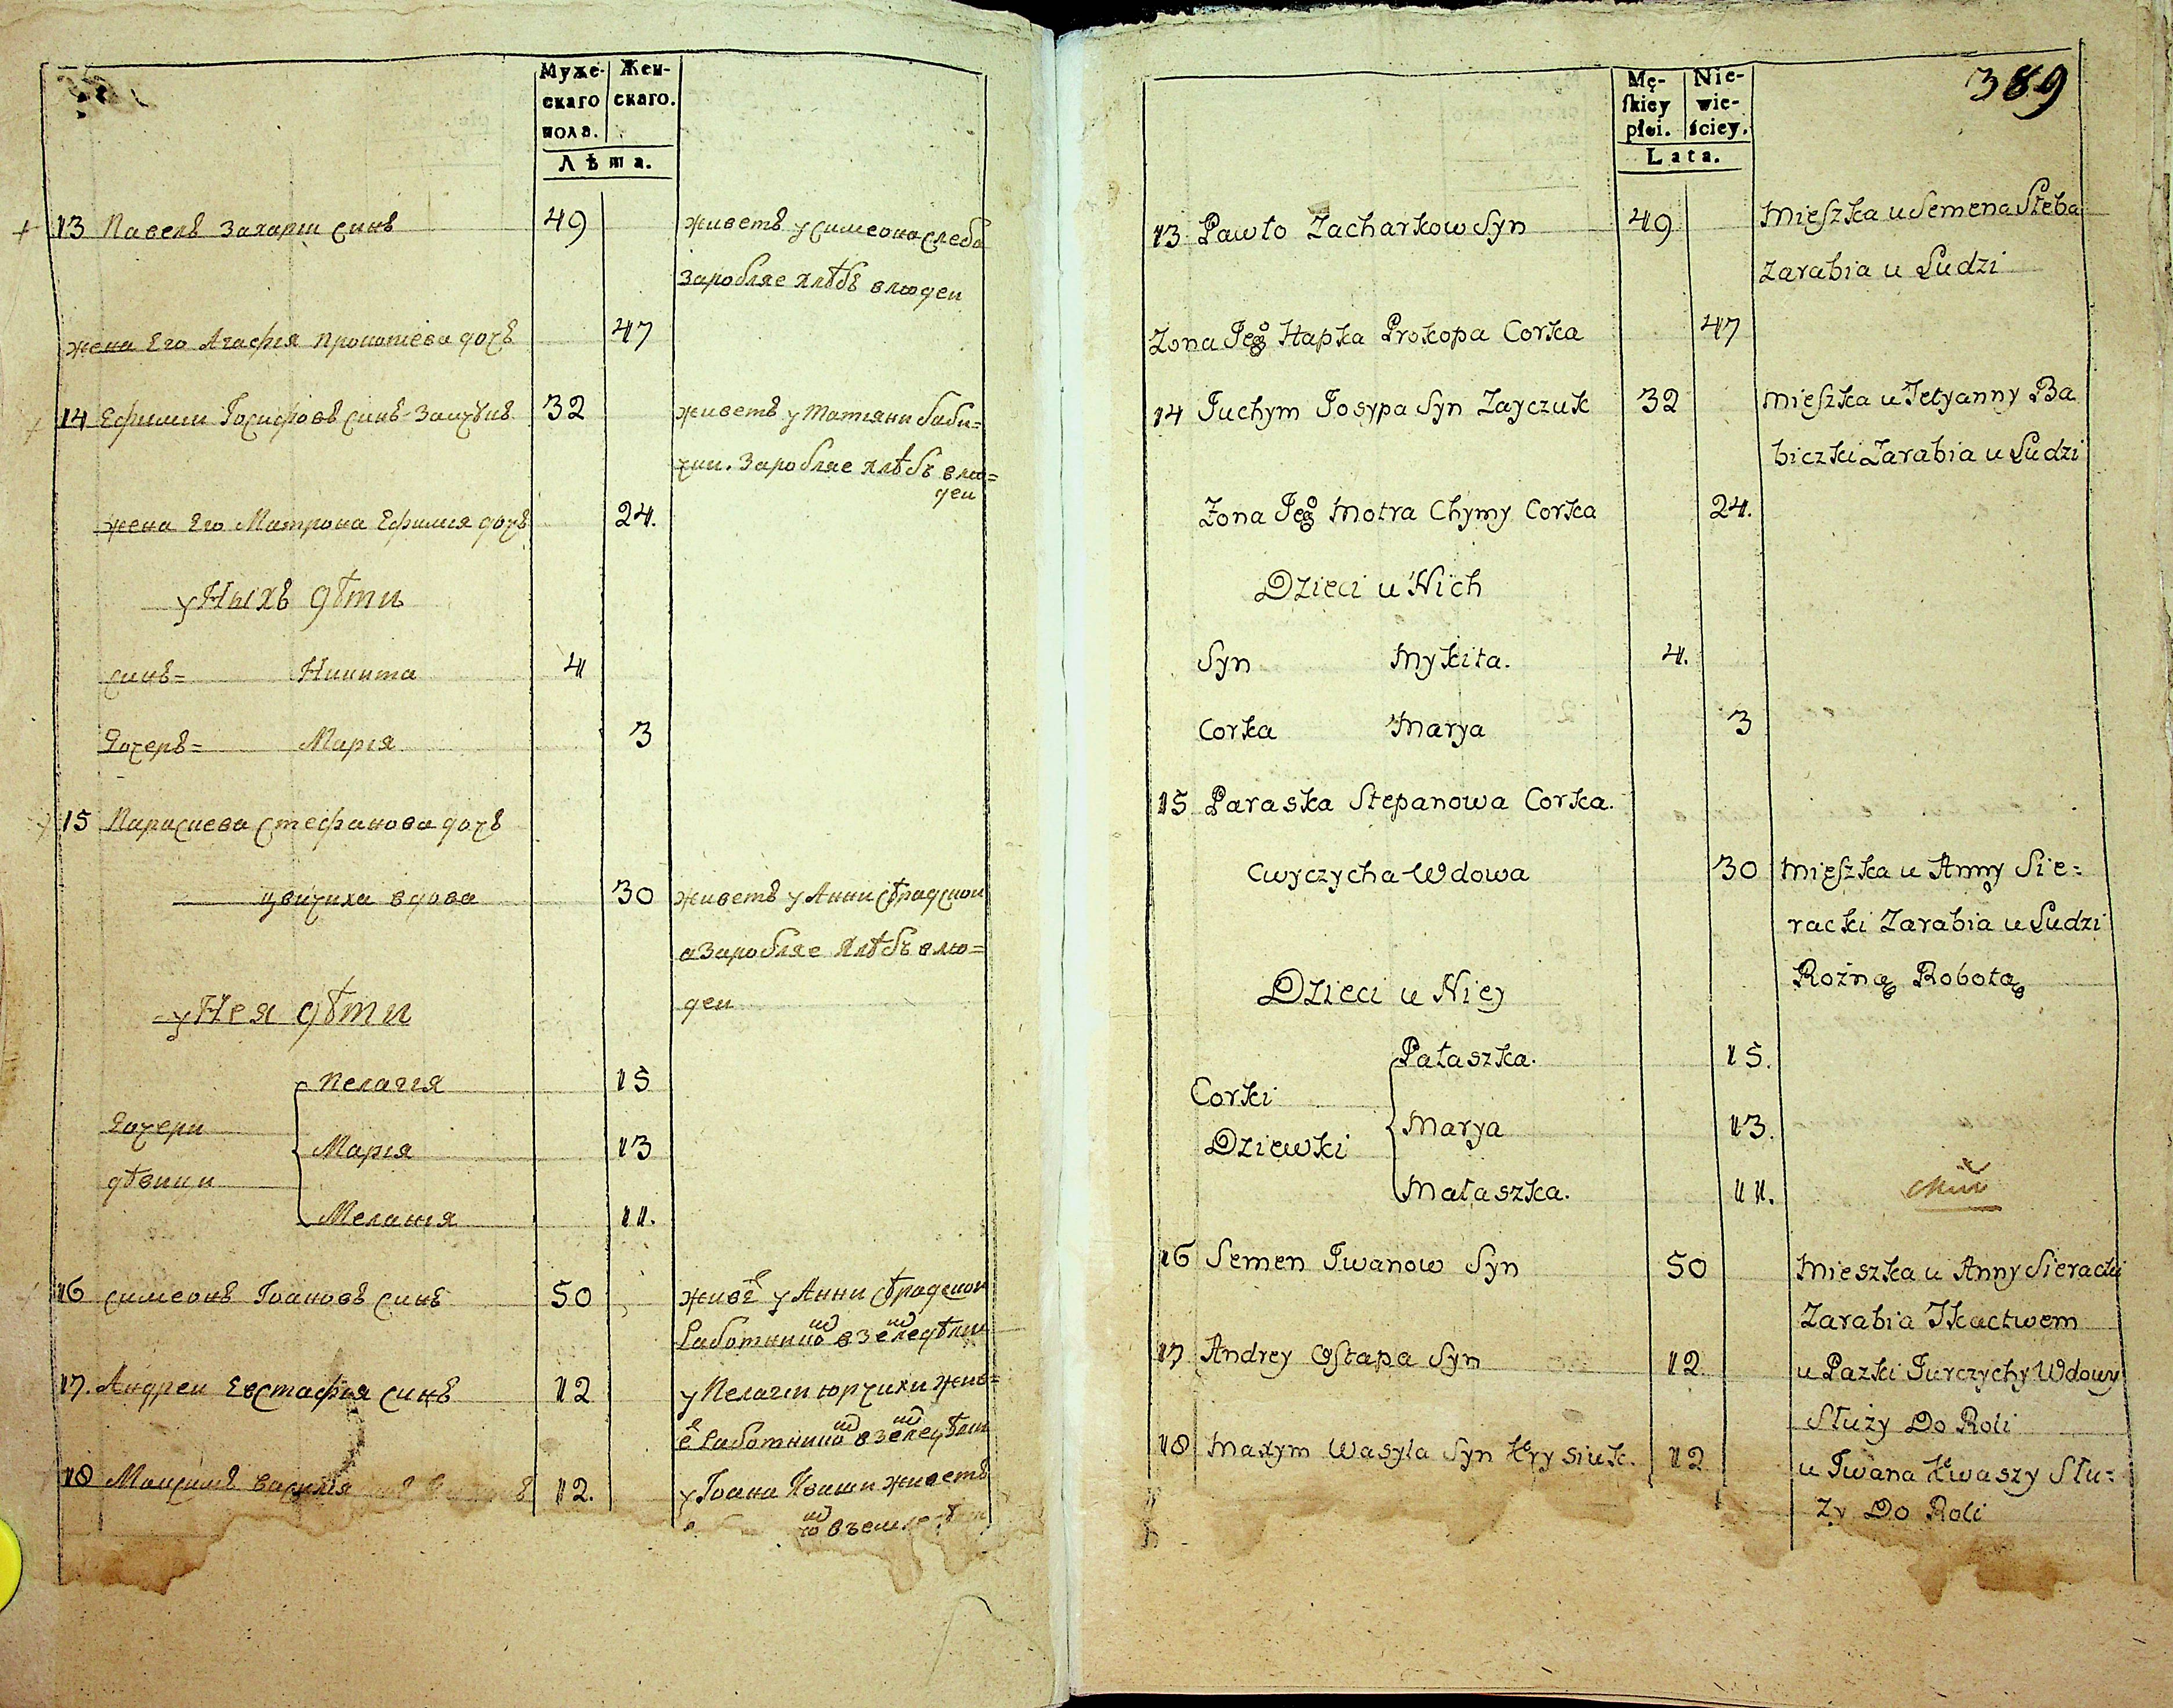 Муже- Жен-
скаго скаго.
пола.
Лѣта.
13 Павелъ Захарiи синъ 49 живетъ у Симеона Слеба
заробляе хлѣбъ в людеи
жена Его Агафiя Прокопiева дочъ 47
14 Ефимiи Іосифовъ синъ Заичукъ 32 живетъ у Татiяни Баби=
чки. Заробляе хлѣбъ в лю=
деи
жена Его Матрона Ефимiя дочъ 24.
у Ныхъ дѣти
синъ= Никита 4
Дочеръ= Марiя 3
15 Параскева Стефанова дочъ
Цвичиха вдова 30 живетъ у Анни Сѣрадскои
а Заробляе хлѣбъ в лю=
деи
у Нея дѣти
Пелагiя 15
Дочери
Марiя 13
дѣвици
Меланiя 11.
16 Симеонъ Іоановъ синъ 50 живе у Анни Сѣрадскои
17. Андреи Евстафiя синъ 12 у Пелагiи Юрчихи жив=
18 Максимъ Василiя 12. у Іоана Кваши живетъ
389
Mę- Nie-
ſkiey wie-
płci. ściey.
Lata.
13 Pawło Zacharkow Syn 49 Mieſzka u Semena Słeba
Zarabia u Ludzi
Zona Jego Hapka Prokopa Corka 47
14 Juchym Josypa Syn Zayczuk 32 Mieſzka u Tetyanny Ba
biczki Zarabia u Ludzi
Zona Jego Motra Chymy Corka 24.
Dzieci u Nich
Syn Mykita. 4.
Corka Marya 3
15 Paraska Stepanowa Corka.
Cwyczycha Wdowa 30 Mieſzka u Anny Sie=
racki Zarabia u Ludzi
Rożną Robotą
Dzieci u Niey
Pałaszka. 15.
Corki
Marya 13.
Dziewki
Małaszka. 11.
16 Semen Iwanow Syn 50 Mieszka u Anny Sieracki
Zarabia Tkactwem
17 Andrey Ostapa Syn 12 u Pazki Jurczychy Wdowy
Służy Do Roli
18 Maxym Wasyla Syn Krysiuk. 12 u Iwana Kwaszy Słu=
ży Do Roli